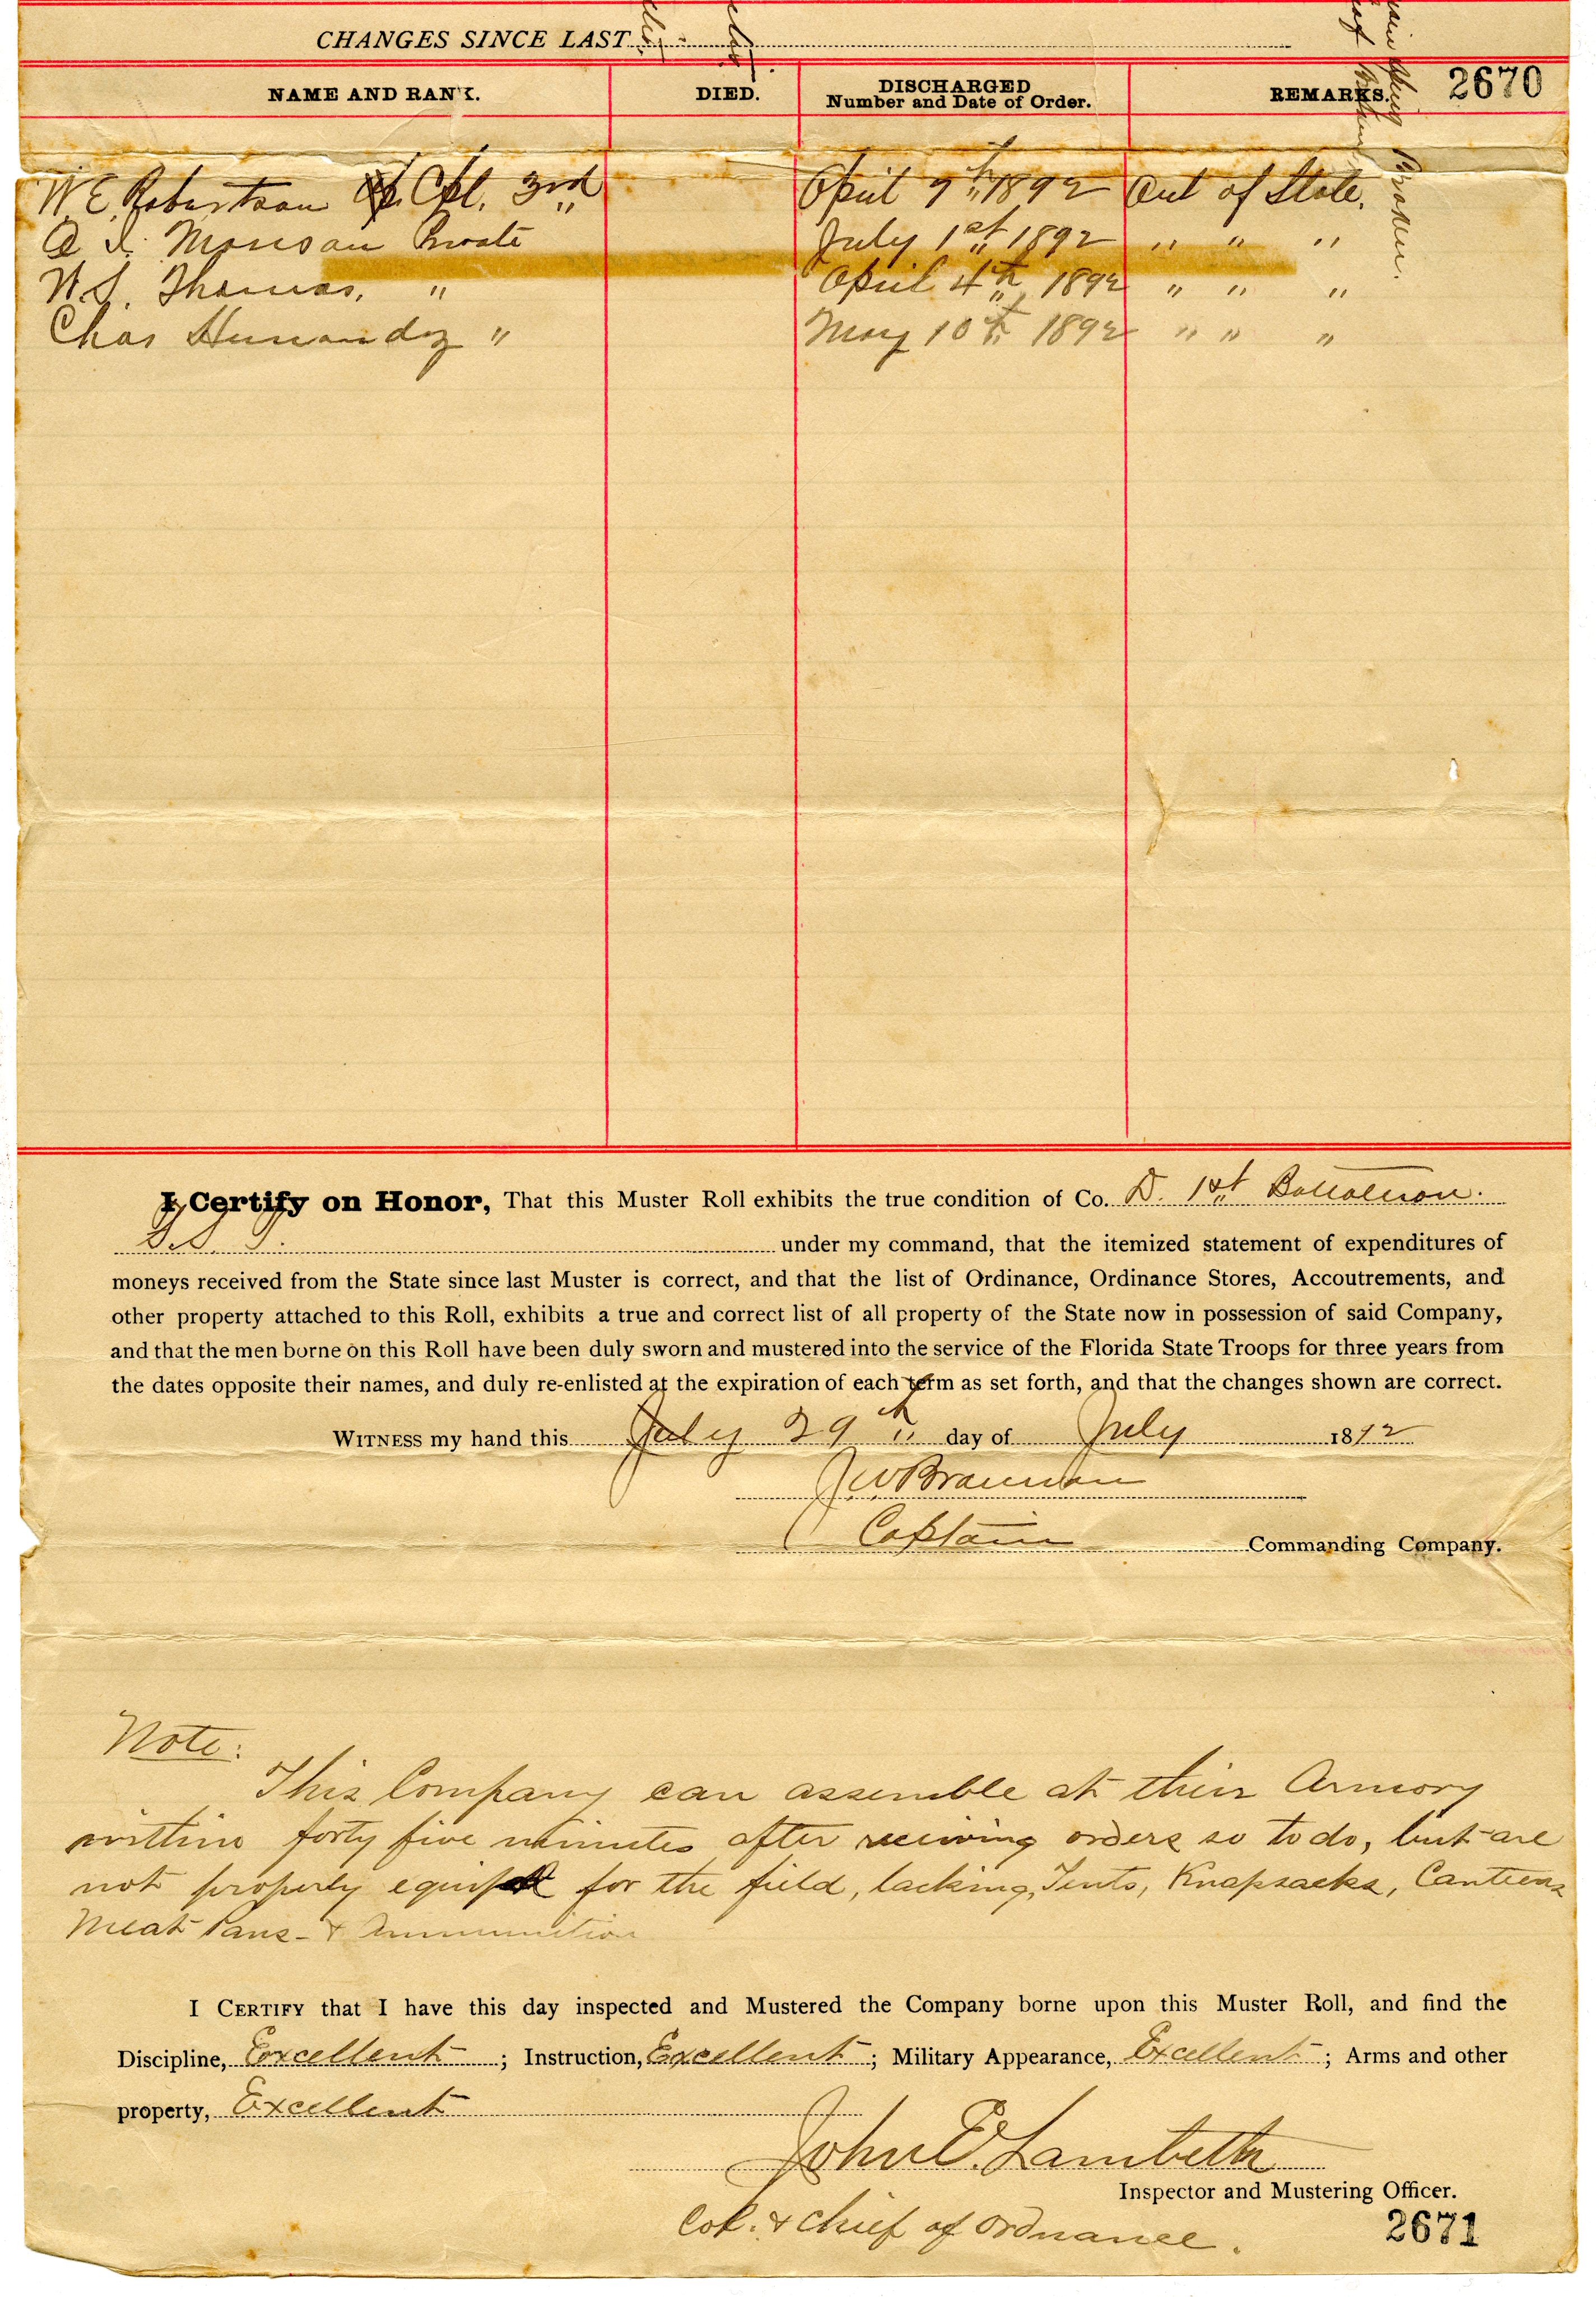 CHANGES SINCE LAST
NAME AND RANK. DIED. DISCHARGED Number and Date of Order. REMARKS. 2670
Main Spring Broken.
W. E. Robertson Cpl. 3rd April 9th 1892 Out of State.
Private July 1st 1892 " " "
W. S. Thomas, " April 4th 1892 " " "
Chas Hernandez " May 10th 1892 " " "
I Certify on Honor, That this Muster Roll exhibits the true condition of Co. D. 1st Battalion.
S. T. under my command, that the itemized statement of expenditures of
moneys received from the State since last Muster is correct, and that the list of Ordinance, Ordinance Stores, Accoutrements, and
other property attached to this Roll, exhibits a true and correct list of all property of the State now in possession of said Company,
and that the men borne on this Roll have been duly sworn and mustered into the service of the Florida State Troops for three years from
the dates opposite their names, and duly re-enlisted at the expiration of each term as set forth, and that the changes shown are correct.
WITNESS my hand this July 29th day of July 1892
J. W. Brannan
Captain Commanding Company.
Note:
This Company can assemble at their Armory
within forty five minutes after receiving orders so to do, but are
not properly equipt for the field, lacking, Tents, Knapsacks, Canteens
Meat Pans - & Ammunition
I CERTIFY that I have this day inspected and Mustered the Company borne upon this Muster Roll, and find the
Discipline, Excellent ; Instruction, Excellent ; Military Appearance, Excellent ; Arms and other
property, Excellent
John E. Lambeth
Inspector and Mustering Officer.
Col. & Chief of Ordnance.
2671